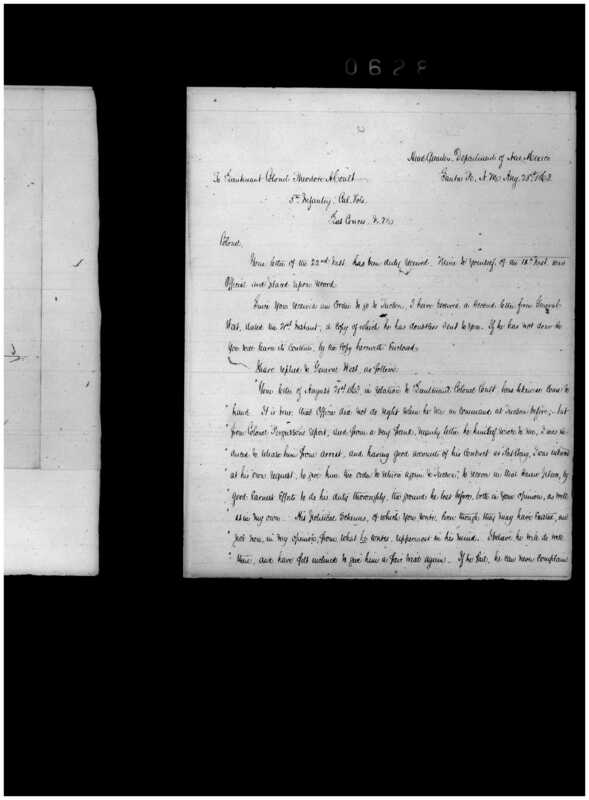 0628
Head Quarters, Department of New Mexico
Santa Fe, N. M. Aug. 28th, 1863.
To Lieutenant Colonel Theodore A. Coult
5th Infantry, Cal. Vols.
Las Cruces, N. M.
Colonel,
Your letter of the 22nd inst. has been duly received. Mine to yourself, of the 18th inst. was
Official and placed upon record.
Since you received an Order to go to Tucson, I have received a second letter from General
West, dated the 21st Instant; a Copy of which he has doubtless sent to you. If he has not done so
you will learn its Contents, by the Copy herewith Enclosed.
I have replied to General West, as follows:
"Your letter of August 21st 1863, in relation to Lieutenant Colonel Coult, has likewise come to
" hand. It is true, that Officer did not do right when he was in Command at Tucson before; but
from Colonel Fergusson's report, and from a very frank, manly letter he himself wrote to me, I was in-
duced to release him from arrest, and having good accounts of his conduct at Fort Craig, I was induced
at his own request, to give him the order to return again to Tucson; to recover in that
good Earnest Efforts to do his duty thoroughly, the ground he lost before, both in your opinion, as well
as in my own. His political schemes, of which you wrote, even though they may have Existed, are
not now, in my opinion, from what he writes, uppermost in his mind. I believe he will do well
" there, and have felt inclined to give him a fair trial again. If he fail, he can never complain